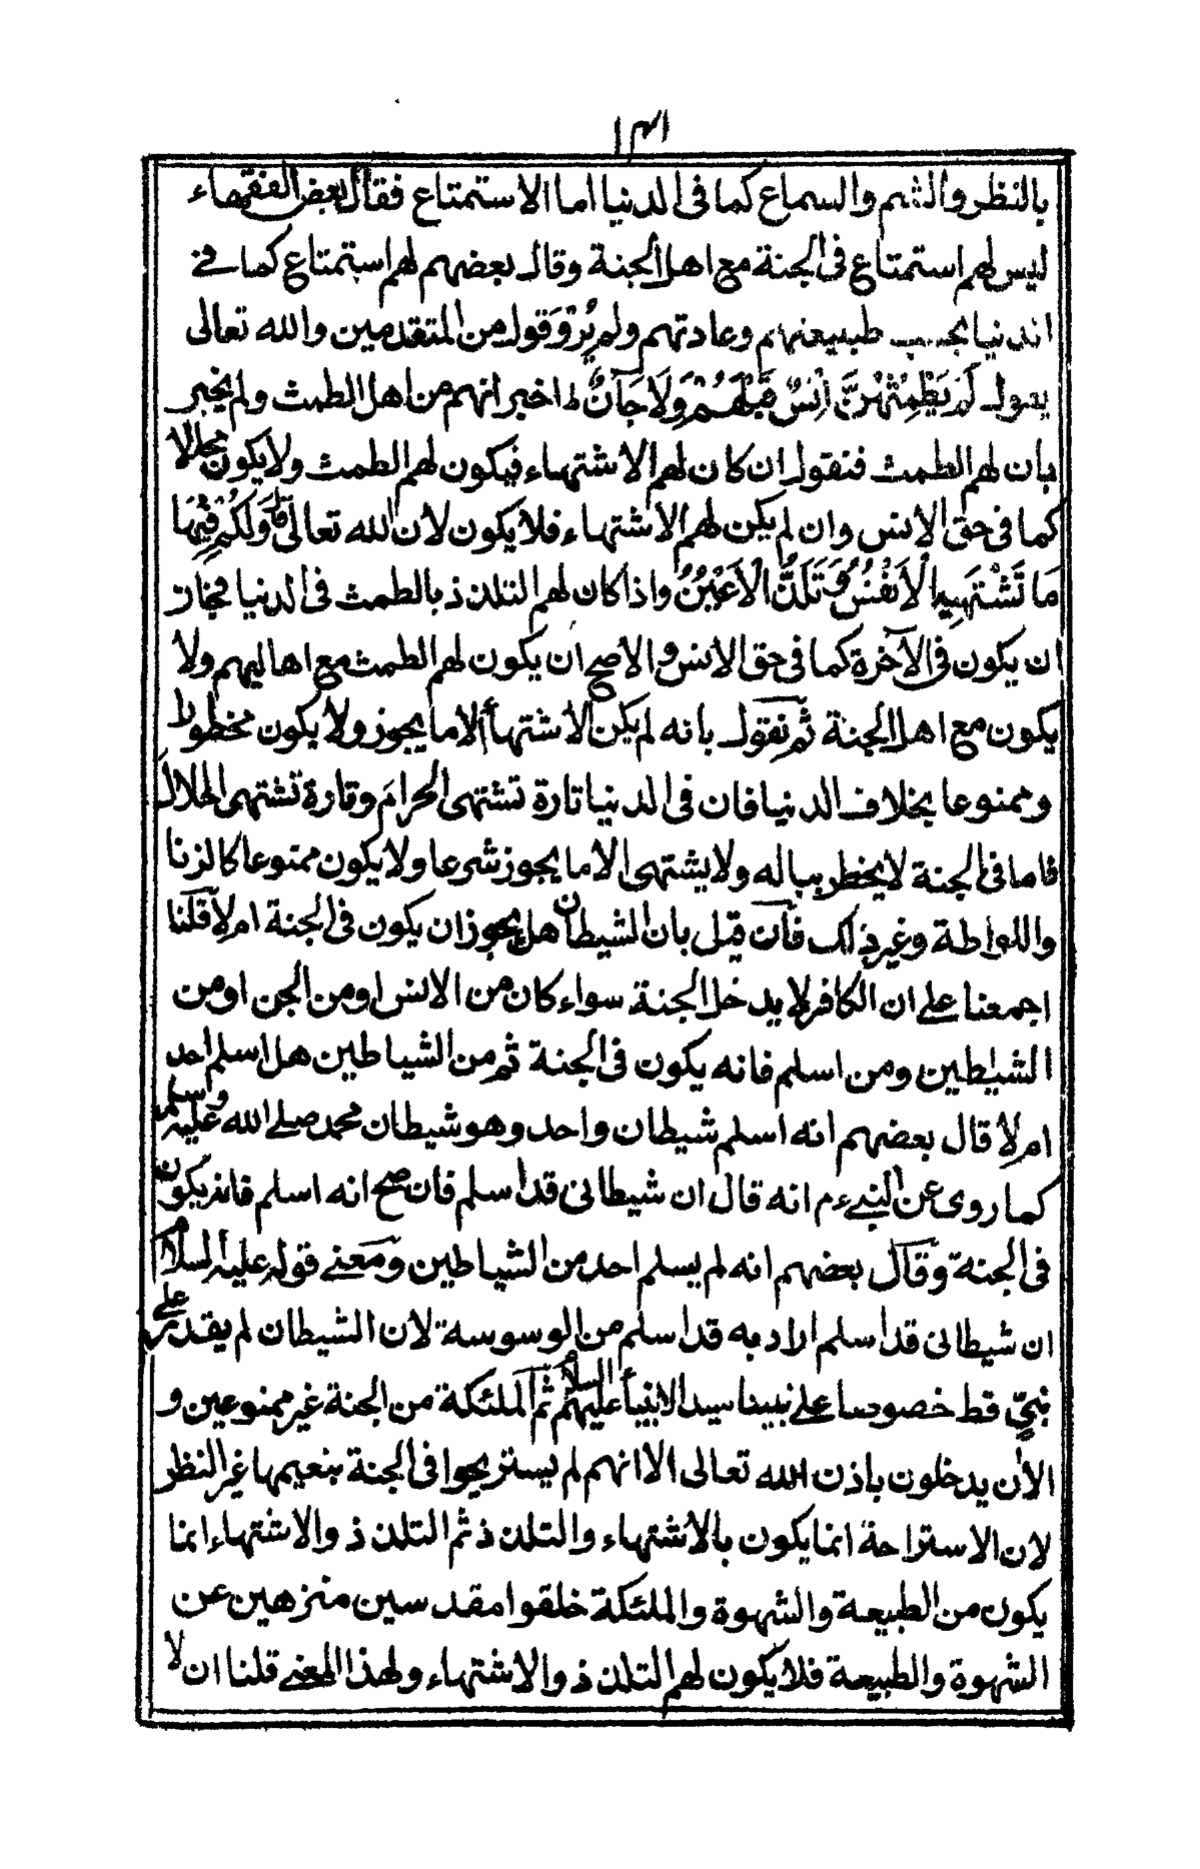 ١٣١
بالنظر والشم والسماع كما فى الدنيا اما الاستمتاع فقال بعض الفقهاء
ليس لهم استمتاع فى الجنة مع اهل الجنة وقال بعضهم لهم استمتاع كما فى
الدنيا بحسب طبيعتهم وعادتهم ولم يُرْوَ قول من المتقدمين والله تعالى
يقول لَمْ يَطْمِثْهُنَّ اِنْسٌ قَبْلَهُمْ وَلَا جَآنٌّ ط اخبر انهم من اهل الطمث ولم يخبر
بان لهم الطمث فنقول ان كان لهم الاشتهاء فيكون لهم الطمث ولا يكون محالا
كما فى حق الانس وان لم يكن لهم الاشتهاء فلا يكون لان الله تعالى قال وَلَكُمْ فِيْهَا
مَا تَشْتَهِيهِ الْاَنْفُسُ وَتَلَذُّ الْاَعْيُنُ واذا كان لهم التلذذ بالطمث فى الدنيا فجاز
ان يكون فى الآخرة كما فى حق الانس والاصح ان يكون لهم الطمث مع اهاليهم ولا
يكون مع اهل الجنة ثم نقول بانه لم يكن الاشتهاء الا ما يجوز ولا يكون محظورا
وممنوعا بخلاف الدنيا فان فى الدنيا تارة تشتهى الحرام وتارة تشتهى الحلال
فاما فى الجنة لا يخطر بباله ولا يشتهى الا ما يجوز شرعا ولا يكون ممنوعا كالزنا
واللواطة وغير ذلك فان قيل بان الشيطان هل يجوز ان يكون فى الجنة ام لا قلنا
اجمعنا على ان الكافر لا يدخل الجنة سواء كان من الانس او من الجن او من
الشيطين ومن اسلم فانه يكون فى الجنة ثم من الشياطين هل اسلم احد
ام لا قال بعضهم انه اسلم شيطان واحد وهو شيطان محمد صلى الله عليه وسلم
كما روى عن النبى ءم انه قال ان شيطانى قد اسلم فان صح انه اسلم فانه يكون
فى الجنة وقال بعضهم انه لم يسلم احد من الشياطين ومعنى قوله عليه السلام
ان شيطانى قد اسلم اراد به قد اسلم من الوسوسة لان الشيطان لم يقدر على
نبىٍّ قط خصوصا على نبينا سيد الانبيأ عليهم السلام ثم الملئكة من الجنة غير ممنوعين و
الآن يدخلون باذن الله تعالى الا انهم لم يستريحوا فى الجنة بنعيمها غير النظر
لان الاستراحة انما يكون بالاشتهاء والتلذذ ثم التلذذ والاشتهاء انما
يكون من الطبيعة والشهوة والملئكة خلقوا مقدسين منزهين عن
الشهوة والطبيعة فلا يكون لهم التلذذ والاشتهاء ولهذا المعنى قلنا ان لا